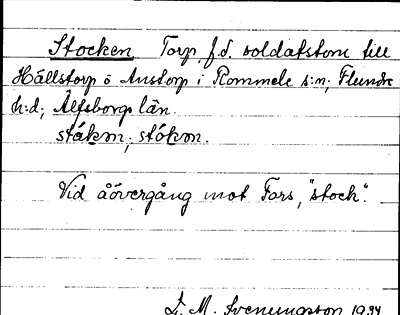 Stocken Torp f.d. soldatstom till
Hällstorp o Anstorp i Rommele s:n; Flundre
h:d; Älfsborgs län.
ståkm; stókm.
Vid åövergång mot Fors, "stock".
L. M. Svenungsson 1934